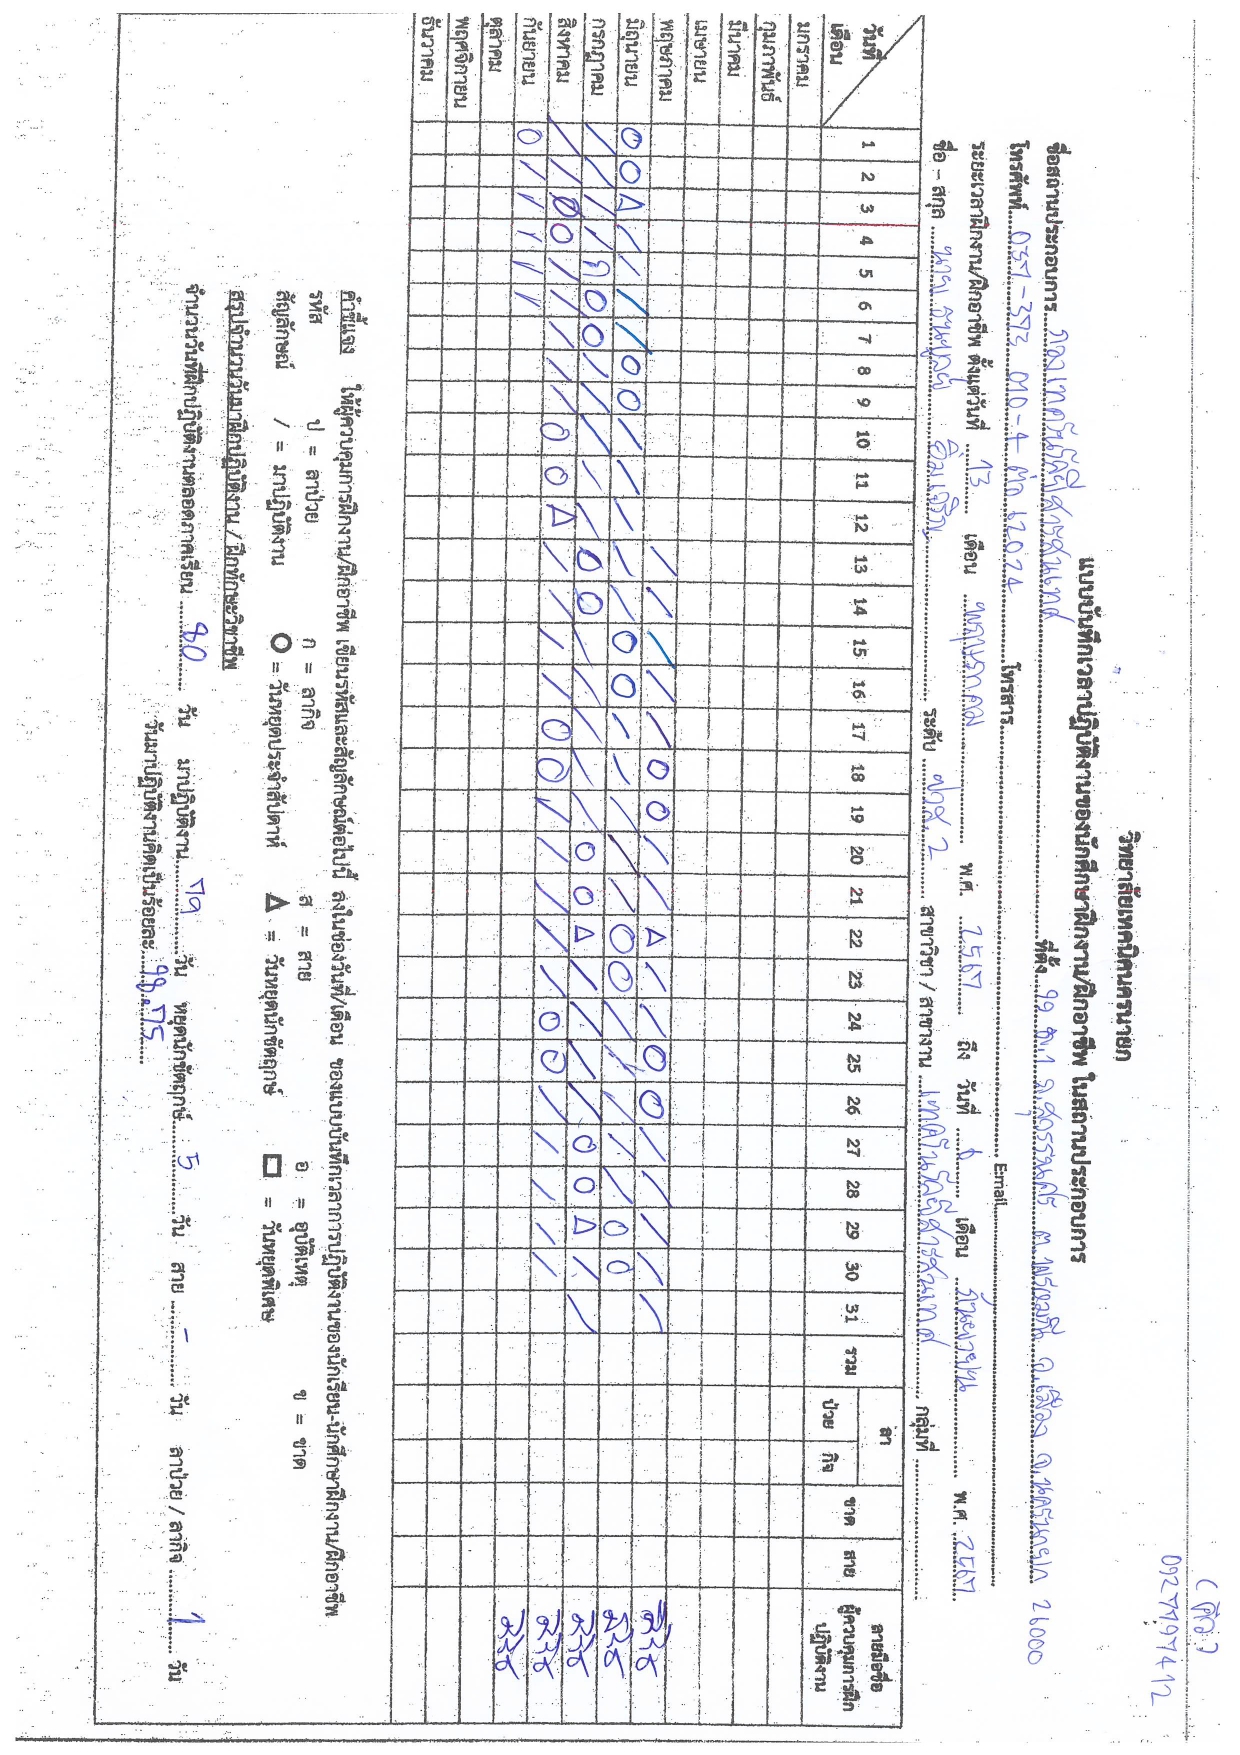 (คือ)
0927797412
วิทยาลัยเทคนิคนครนายก
แบบบันทึกเวลาปฏิบัติงานของนักศึกษาฝึกงาน/ฝึกอาชีพ ในสถานประกอบการ
ชื่อสถานประกอบการ ที่ตั้ง 99 ม.1 ถ.สุวรรณศร ต.พรหมณี อ.เมือง จ.นครนายก 26000
โทรศัพท์ 037-392 010-4 ต่อ 62024 โทรสาร Email
ระยะเวลาฝึกงาน/ฝึกอาชีพ ตั้งแต่วันที่ 13 เดือน พฤษภาคม พ.ศ. 2567 ถึง วันที่ 6 เดือน กันยายน พ.ศ. 2567
ชื่อ – สกุล นาย ระดับ ปวส.2 สาขาวิชา / สาขางาน เทคโนโลยีสารสนเทศ กลุ่มที่
วันที่ 1 2 3 4 5 6 7 8 9 10 11 12 13 14 15 16 17 18 19 20 21 22 23 24 25 26 27 28 29 30 31 รวม ลา ขาด สาย ลายมือชื่อ
เดือน ป่วย กิจ ผู้ควบคุมการฝึก
ปฏิบัติงาน
มกราคม
กุมภาพันธ์
มีนาคม
เมษายน
พฤษภาคม / / / / / O O / / / Δ / / O O / / / / /
มิถุนายน O O Δ / / / / O O / / / / / O O / / / / / O O / / / / / O O
กรกฎาคม / / / / ก O O / / / / / O O / / / / / O O Δ / / / / O O Δ / /
สิงหาคม / / O O / / / / / O O Δ / / / / O O / / / / / O O / / / / /
กันยายน O / / / / /
ตุลาคม
พฤศจิกายน
ธันวาคม
คำชี้แจง ให้ผู้ควบคุมการฝึกงาน/ฝึกอาชีพ เขียนรหัสและสัญลักษณ์ต่อไปนี้ ลงในช่องวันที่/เดือน ของแบบบันทึกเวลาการปฏิบัติงานของนักเรียน-นักศึกษาฝึกงาน/ฝึกอาชีพ
รหัส ป = ลาป่วย ก = ลากิจ ส = สาย อ = อุบัติเหตุ ข = ขาด
สัญลักษณ์ / = มาปฏิบัติงาน O = วันหยุดประจำสัปดาห์ Δ = วันหยุดนักขัตฤกษ์ □ = วันหยุดพิเศษ
สรุปจำนวนวันมาฝึกปฏิบัติงาน / ฝึกทักษะวิชาชีพ
จำนวนวันที่ฝึกปฏิบัติงานตลอดภาคเรียน 80 วัน มาปฏิบัติงาน 79 วัน หยุดนักขัตฤกษ์ 5 วัน สาย - วัน ลาป่วย / ลากิจ 1 วัน
วันมาปฏิบัติงานคิดเป็นร้อยละ 98.75